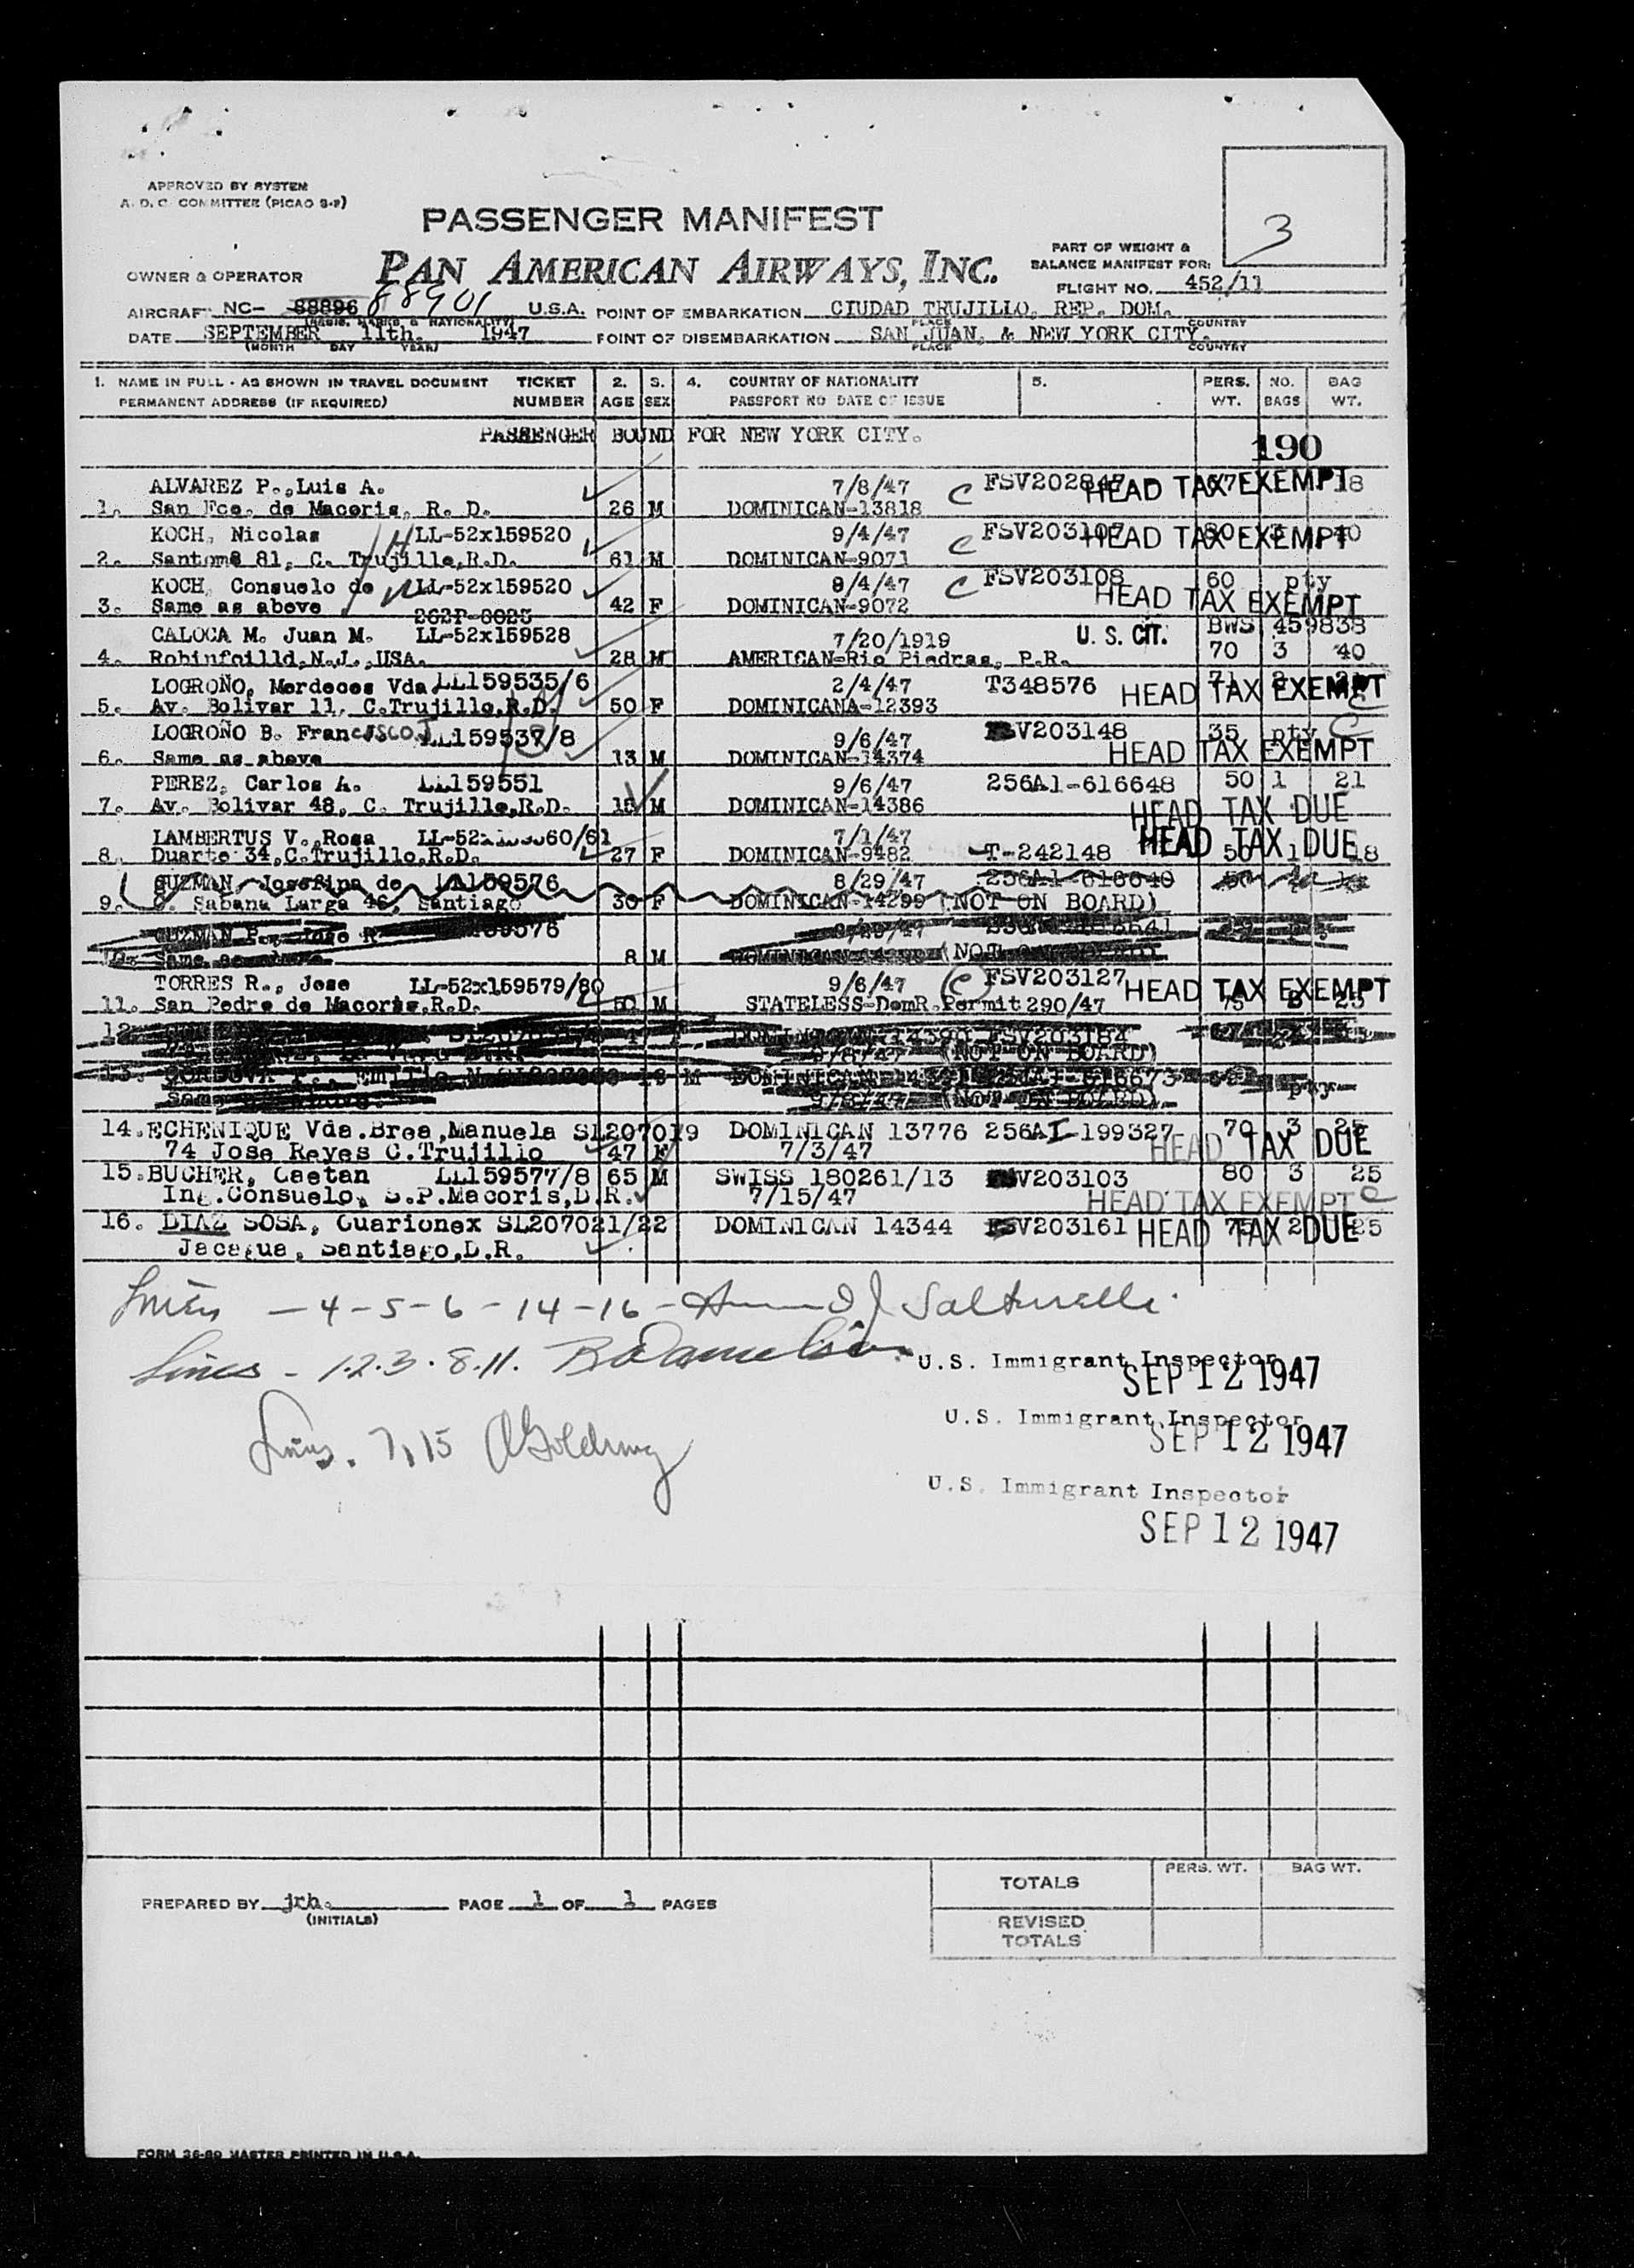 APPROVED BY SYSTEM
A. D. C. COMMITTEE (PICAO 9-2)
3
PASSENGER MANIFEST
PAN AMERICAN AIRWAYS, INC.
PART OF WEIGHT &
BALANCE MANIFEST FOR:
OWNER & OPERATOR
FLIGHT NO. 452/11
AIRCRAFT NC- 88896 88901 U.S.A. POINT OF EMBARKATION CIUDAD TRUJILLO, REP. DOM.
(REGIS. MARKS & NATIONALITY) PLACE COUNTRY
DATE SEPTEMBER 11th. 1947 POINT OF DISEMBARKATION SAN JUAN, & NEW YORK CITY.
(MONTH DAY YEAR) PLACE COUNTRY
1. NAME IN FULL - AS SHOWN IN TRAVEL DOCUMENT TICKET 2. 3. 4. COUNTRY OF NATIONALITY 5. PERS. NO. BAG
PERMANENT ADDRESS (IF REQUIRED) NUMBER AGE SEX PASSPORT NO DATE OF ISSUE WT. BAGS WT.
PASSENGER BOUND FOR NEW YORK CITY.
190
ALVAREZ P., Luis A. 7/8/47 C FSV202847 HEAD TAX EXEMPT 18
1. San Fco. de Macoris, R. D. 26 M DOMINICAN-13818
KOCH, Nicolas LL-52x159520 9/4/47 C FSV203107 HEAD TAX EXEMPT 80 3 40
2. Santomé 81, C. Trujillo,R.D. 61 M DOMINICAN-9071
KOCH, Consuelo de LL-52x159520 9/4/47 C FSV203108 60 pty
3. Same as above 42 F DOMINICAN-9072 HEAD TAX EXEMPT
262P-0025
CALOCA M. Juan M. LL-52x159528 7/20/1919 U. S. CIT. BWS 459838
4. Robinfeilld,N.J.,USA. 28 M AMERICAN-Rio Piedras, P.R. 70 3 40
LOGROÑO, Merdeces Vda LL159535/6 2/4/47 T348576 HEAD TAX EXEMPT
5. Av. Bolivar 11, C.Trujillo,R.D. 50 F DOMINICANA-12393
LOGROÑO B. Francisco J LL159537/8 9/6/47 FSV203148 35 pty C
6. Same as above 13 M DOMINICAN-14374 HEAD TAX EXEMPT
PEREZ, Carlos A. LL159551 9/6/47 256A1-616648 50 1 21
7. Av. Bolivar 48, C. Trujillo,R.D. 15 M DOMINICAN-14386 HEAD TAX DUE
LAMBERTUS V.,Rosa 7/1/47 HEAD TAX DUE
8. Duarte 34,C.Trujillo,R.D. 27 F DOMINICAN-9482 T-242148 50 1 18
GUZMAN, Josefina de LL159576 8/29/47 256A1-616640
9. Sabana Larga 46, Santiago 30 F DOMINICAN-14299 (NOT ON BOARD)
GUZMAN
10. Same as above 8 M
TORRES R., Jose LL-52x159579/80 9/6/47 C FSV203127 HEAD TAX EXEMPT
11. San Pedro de Macoris,R.D. 50 M STATELESS-DomR.Permit 290/47 75
12. FSV203184
(NOT ON BOARD)
13. M pty
(NOT ON BOARD)
14. ECHENIQUE Vda.Brea,Manuela SL207019 DOMINICAN 13776 256AI-199327 70 3 25
74 Jose Reyes C.Trujillo 47 F 7/3/47 HEAD TAX DUE
15. BUCHER, Gaetan LL159577/8 65 M SWISS 180261/13 FSV203103 80 3 25
Ing.Consuelo, S.P.Macoris,D.R. 7/15/47 HEAD TAX EXEMPT C
16. DIAZ SOSA, Guarionex SL207021/22 DOMINICAN 14344 FSV203161 HEAD TAX DUE 75 2 25
Jacagua, Santiago,D.R.
Lines - 4 - 5 - 6 - 14 - 16 -
Lines - 1.2.3.8.11.
U.S. Immigrant Inspector
SEP 12 1947
U.S. Immigrant Inspector
Lines. 7,15 Goldring
SEP 12 1947
U.S. Immigrant Inspector
SEP 12 1947
PERS. WT. BAG WT.
TOTALS
PREPARED BY jrh. PAGE 1 OF 1 PAGES
(INITIALS)
REVISED
TOTALS
FORM 36-80 MASTER PRINTED IN U.S.A.